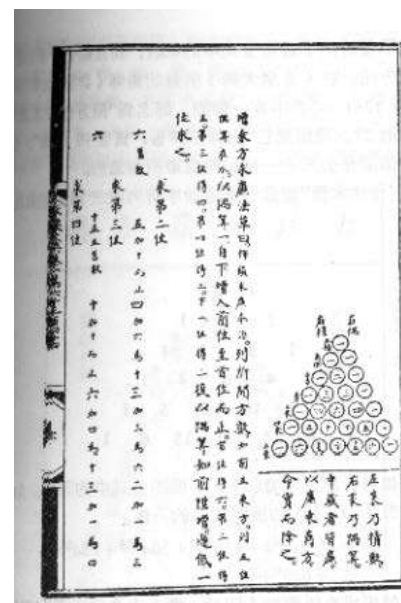 左積
右隅
一
一 一
一 二 一
一 三 三 一
一 四 六 四 一
一 五 十 十 五 一
一 六 十五 二十 十五 六 一
左袤乃積數
右袤乃隅算
中藏者皆廉
以廉乘商方
命實而除之
增乘方求廉法草曰釋鎖求廉本源列所開方數如前五乘方列五位
隅算在外以隅算一自下增入前位至首位而止首位得六第二位得
五第三位得四第四位得三下一位得二復以隅算如前陞增遞低一
位求之
求第二位
六舊數 五加十而止 四加六為十 三加三為六 二加一為三
求第三位
六 十五並舊數 十加十而止 六加四為十 三加一為四
求第四位